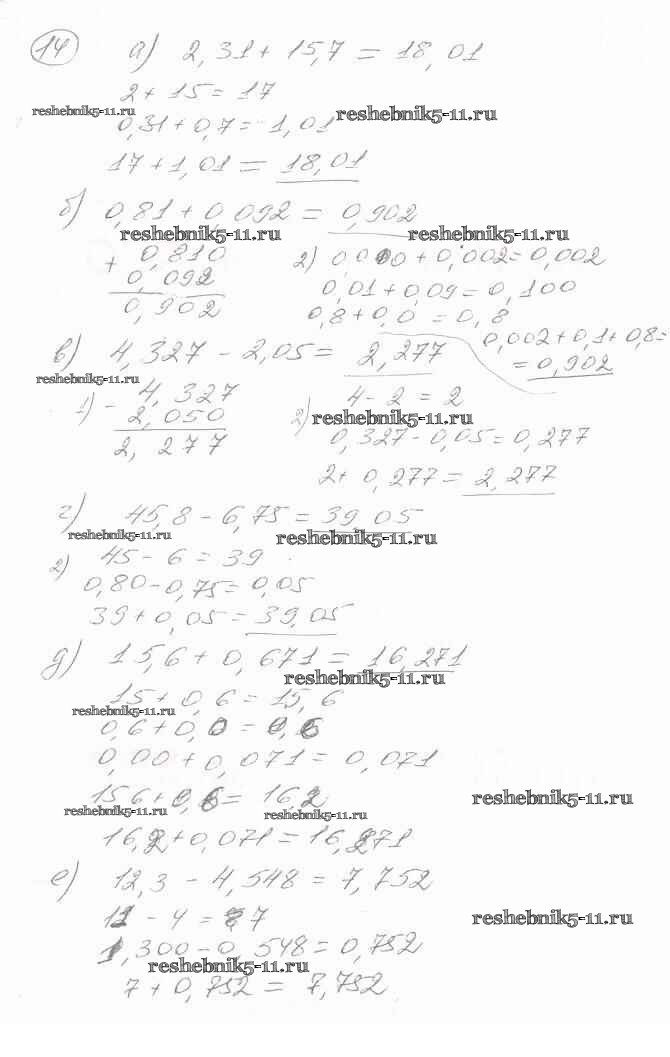 14
а) 2,31 + 15,7 = 18,01
2 + 15 = 17
reshebnik5-11.ru reshebnik5-11.ru
0,31 + 0,7 = 1,01
17 + 1,01 = 18,01
б) 0,81 + 0,092 = 0,902
reshebnik5-11.ru reshebnik5-11.ru
+ 0,810
0,092
0,902
2) 0,000 + 0,002 = 0,002
0,01 + 0,09 = 0,100
0,8 + 0,0 = 0,8
0,002 + 0,1 + 0,8 =
= 0,902
в) 4,327 - 2,05 = 2,277
reshebnik5-11.ru
1) - 4,327
2,050
2,277
2) 4 - 2 = 2
reshebnik5-11.ru
0,327 - 0,05 = 0,277
2 + 0,277 = 2,277
г) 45,8 - 6,75 = 39,05
reshebnik5-11.ru reshebnik5-11.ru
2) 45 - 6 = 39
0,80 - 0,75 = 0,05
39 + 0,05 = 39,05
д) 15,6 + 0,671 = 16,271
reshebnik5-11.ru
15 + 0,6 = 15,6
reshebnik5-11.ru
0,6 + 0,0 = 0,6
0,00 + 0,071 = 0,071
156 + 0,6 = 16,2
reshebnik5-11.ru
reshebnik5-11.ru reshebnik5-11.ru
16,2 + 0,071 = 16,271
е) 12,3 - 4,548 = 7,752
11 - 4 = 7
reshebnik5-11.ru
1,300 - 0,548 = 0,752
reshebnik5-11.ru
7 + 0,752 = 7,752